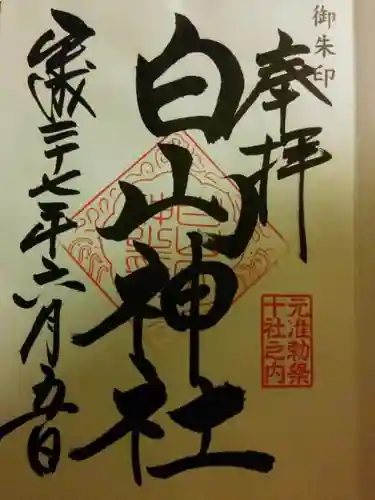 御朱印
奉拝
白山神社
元准勅祭
十社之内
平成二十七年六月五日